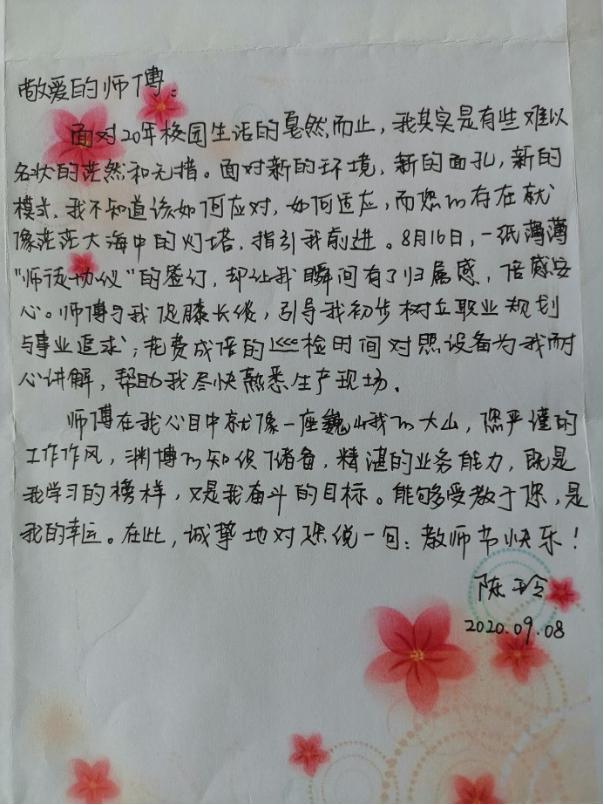 敬爱的师傅:
面对20年校园生活的戛然而止，我其实是有些难以
名状的茫然和无措。面对新的环境，新的面孔，新的
模式，我不知道该如何应对，如何适应，而您的存在就
像茫茫大海中的灯塔，指引我前进。8月16日，一纸薄薄
“师徒协议”的签订，却让我瞬间有了归属感，倍感安
心。师傅与我促膝长谈，引导我初步树立职业规划
与事业追求；花费成倍的巡检时间对照设备为我耐
心讲解，帮助我尽快熟悉生产现场。
师傅在我心目中就像一座巍峨的大山，您严谨的
工作作风，渊博的知识储备，精湛的业务能力，既是
我学习的榜样，又是我奋斗的目标。能够受教于您，是
我的幸运。在此，诚挚地对您说一句：教师节快乐！
陈玲
2020.09.08